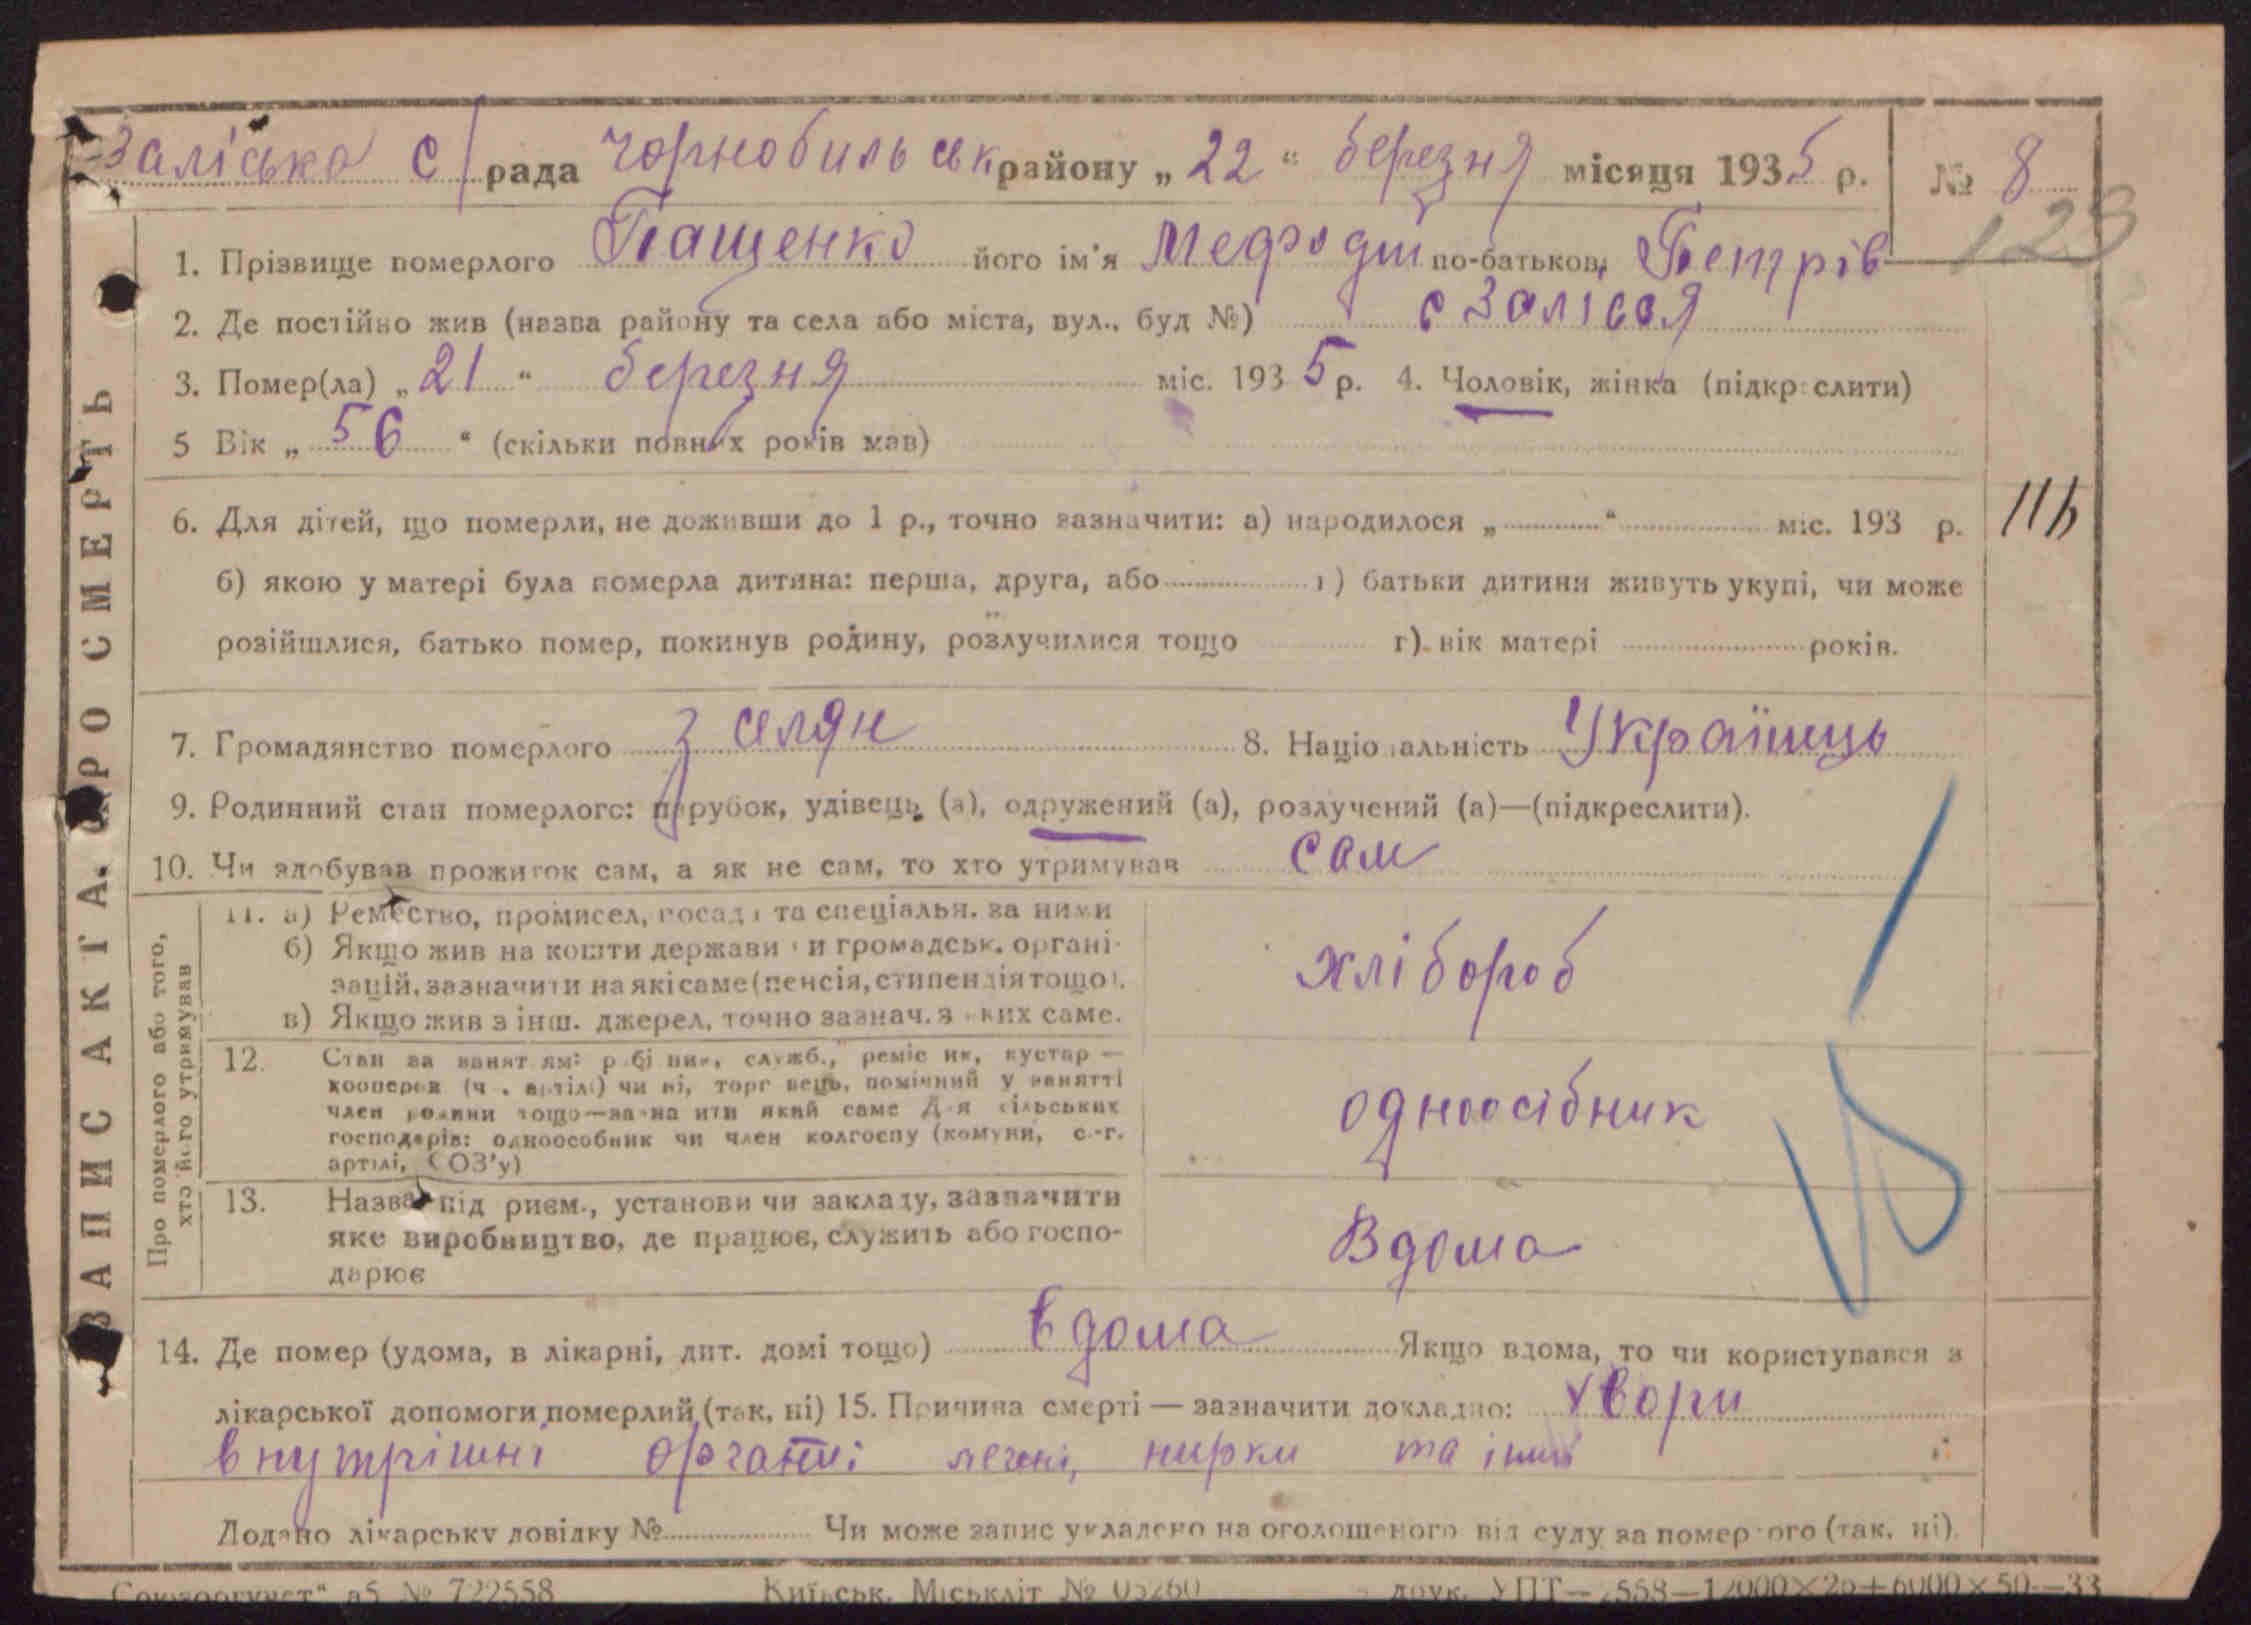 Заліська с/рада Чорнобильськ району „22“ березня місяця 1935 р. № 8
123
1. Прізвище померлого Пащенко його ім'я Мефодій по-батькові Петрів
2. Де постійно жив (назва району та села або міста, вул., буд №) с Залісся
3. Помер(ла) „21“ березня міс. 1935 р. 4. Чоловік, жінка (підкреслити)
5 Вік „56“ (скільки повних років мав)
6. Для дітей, що померли, не доживши до 1 р., точно зазначити: а) народилося „ “ міс. 193 р.
б) якою у матері була померла дитина: перша, друга, або в) батьки дитини живуть укупі, чи може
розійшлися, батько помер, покинув родину, розлучилися тощо г) вік матері років.
7. Громадянство померлого з селян 8. Національність Українець
9. Родинний стан померлого: парубок, удівець (а), одружений (а), розлучений (а)—(підкреслити).
10. Чи здобував прожиток сам, а як не сам, то хто утримував сам
Про померлого або того,
хто його утримував
11. а) Ремество, промисел, посада та спеціальн. за ними
б) Якщо жив на кошти держави чи громадськ. органі-
зацій, зазначити на які саме (пенсія, стипендія тощо).
в) Якщо жив з інш. джерел, точно зазнач. з яких саме.
хлібороб
12. Стан за занят ям: робітник, служб., реміс ник, кустар —
кооперов (ч . артілі) чи ні, торговець, помічний у занятті
член родини тощо—зазначити який саме Для сільських
господарів: одноособник чи член колгоспу (комуни, с.-г.
артілі, СОЗ'у)
одноосібник
13. Назва підприєм., установи чи закладу, зазначити
яке виробництво, де працює, служить або госпо-
дарює
Вдома
14. Де помер (удома, в лікарні, дит. домі тощо) вдома Якщо вдома, то чи користувався з
лікарської допомоги померлий (так, ні) 15. Причина смерті — зазначити докладно: хвори
внутрішні органи: легені, нирки та інші
Додано лікарську довідку № Чи може запис укладено на оголошеного від суду за померлого (так, ні).
ЗАПИС АКТА ПРО СМЕРТЬ
Союзоргучет“ а5 № 722558 Київськ. Міськліт № 05260 друк. УПТ— 558—12000×25+6000×50—33